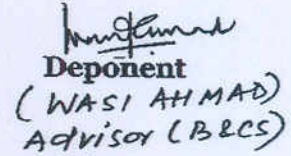 Deponent
(WASI AHMAD)
Advisor (B&CS)